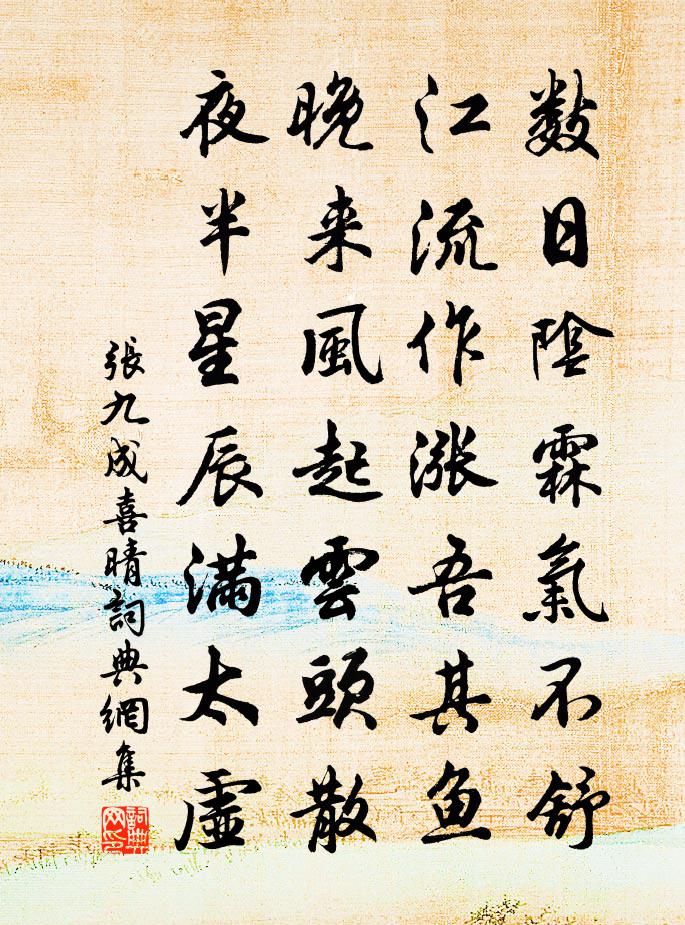 數日陰霖氣不舒
江流作漲吾其鱼
晚来風起雲頭散
夜半星辰滿太虛
張九成喜晴詞典網集
詞典网印